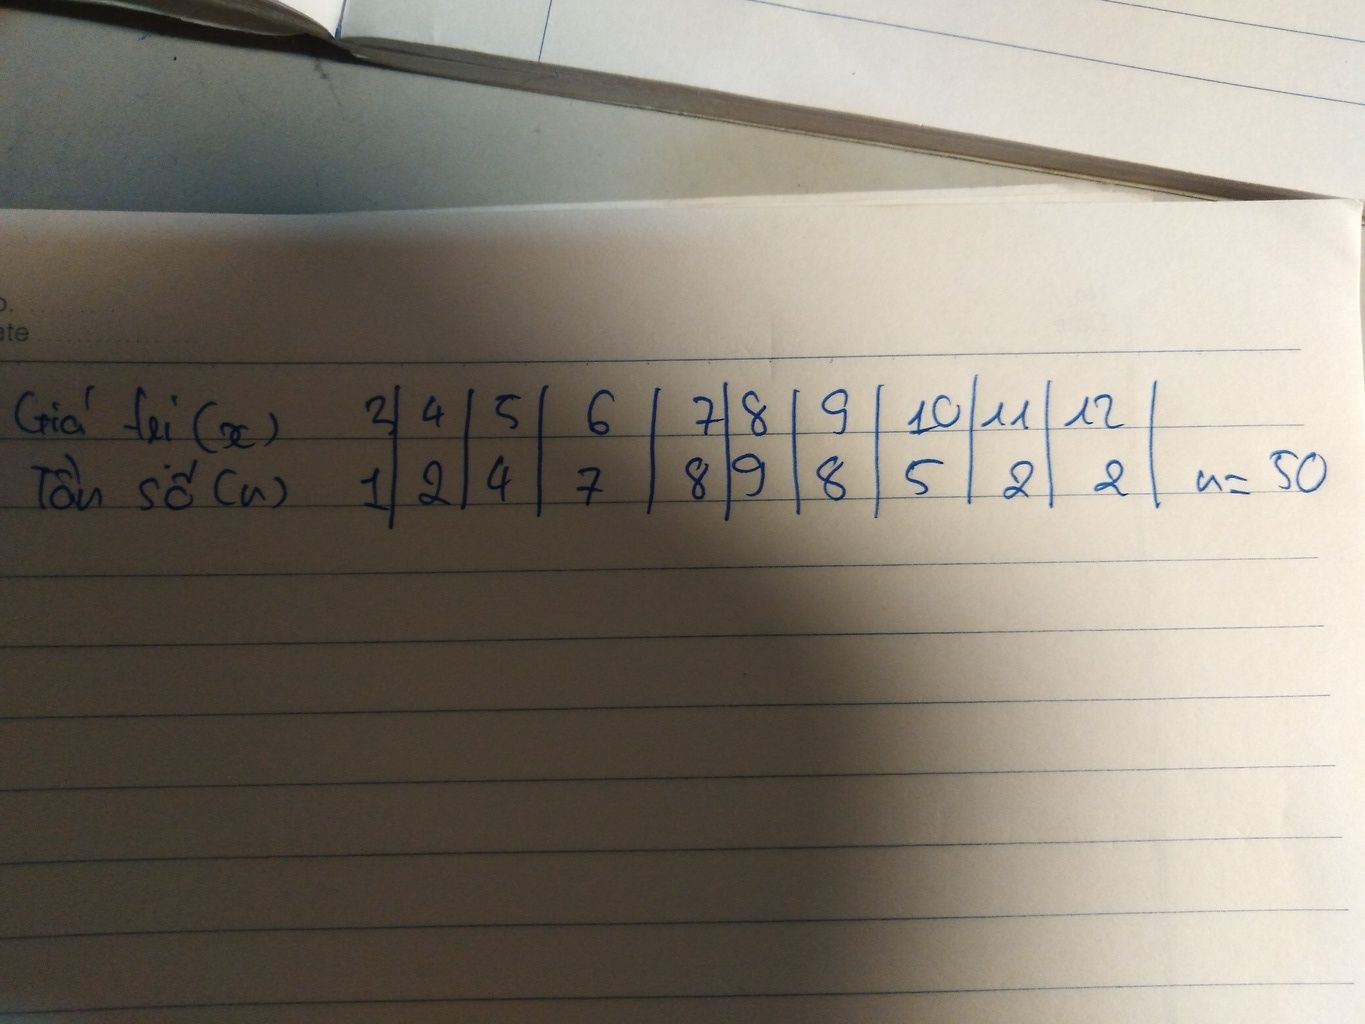 o.
ate
Giá trị (x) 3 | 4 | 5 | 6 | 7 | 8 | 9 | 10 | 11 | 12 |
Tần số (n) 1 | 2 | 4 | 7 | 8 | 9 | 8 | 5 | 2 | 2 | n = 50